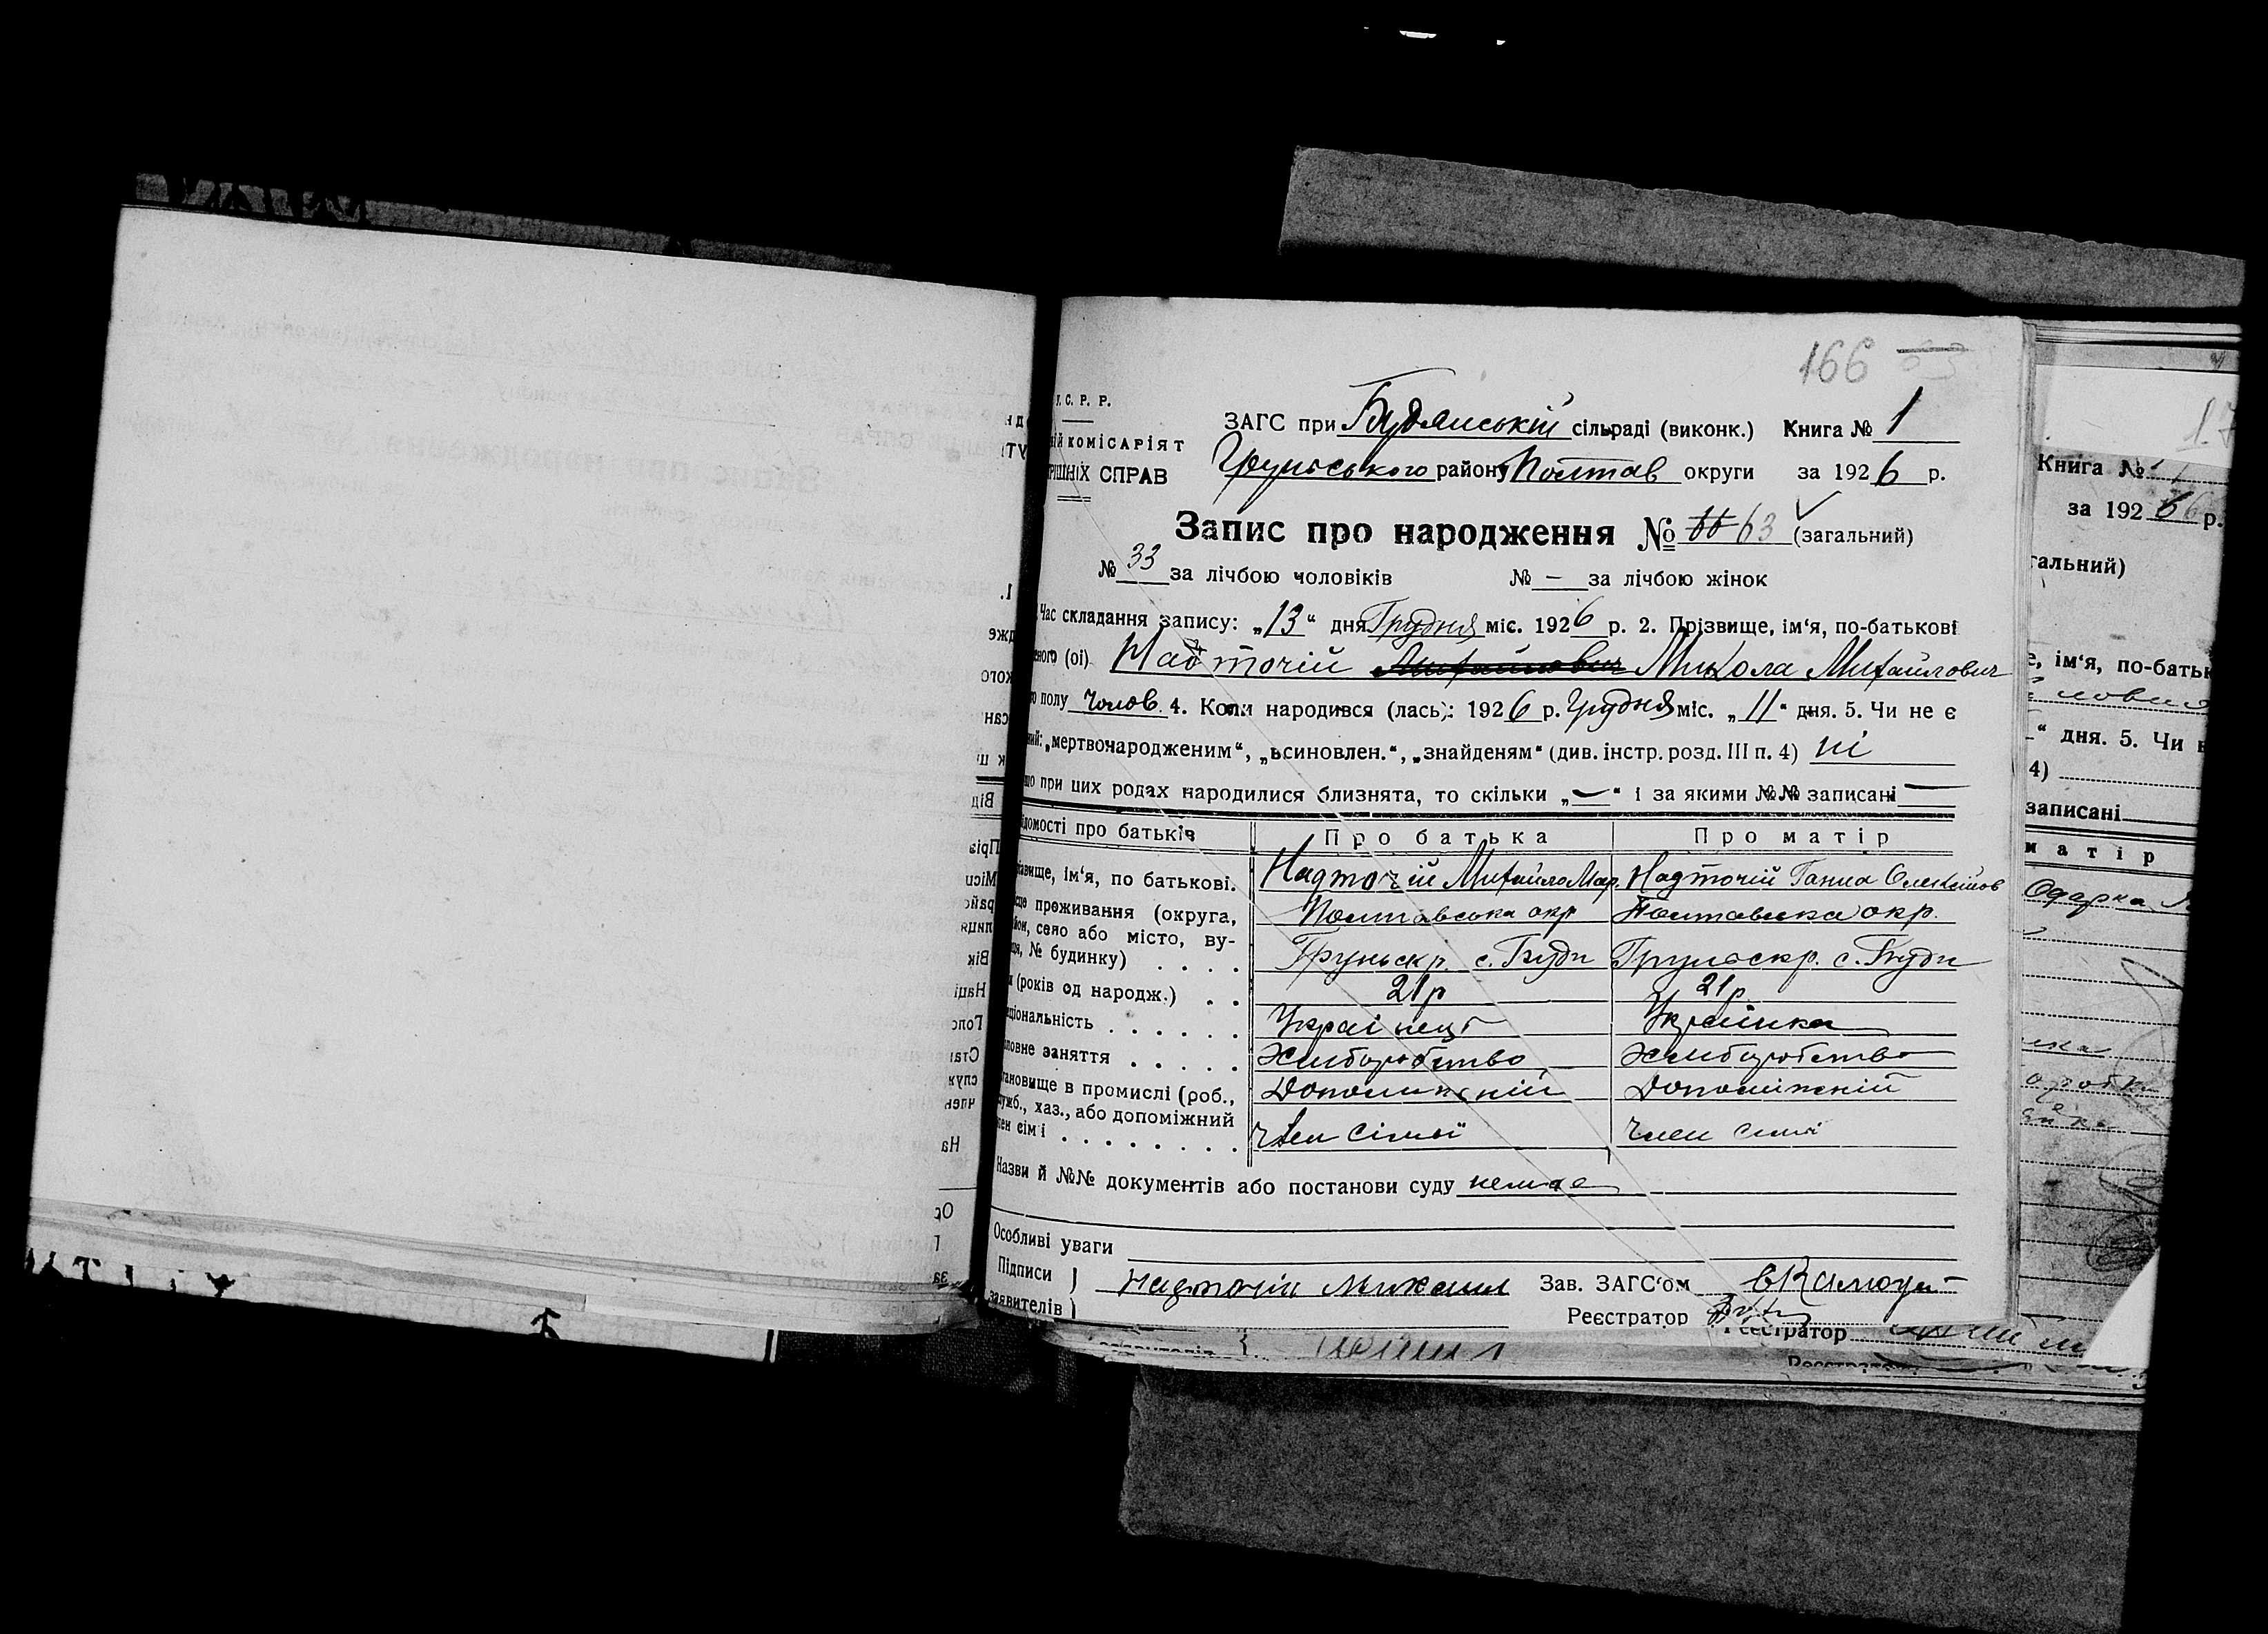 166
У. С. Р. Р.
ЗАГС при Будянській сільраді (виконк.) Книга № 1
КОМІСАРІЯТ
СПРАВ
Груньського району Полтав округи за 1926 р.
Запис про народження № 63 (загальний)
№ 33 за лічбою чоловіків № — за лічбою жінок
Час складання запису: „13“ дня Грудня міс. 1926 р. 2. Прізвище, ім‘я, по-батькові
(ої) Надточій Михайлович Микола Михайлович
полу Чолов. 4. Коли народився (лась): 1926 р. Грудня міс. „11“ дня. 5. Чи не є
„мертвочародженим“, „всиновлен.“, „знайденям“ (див. інстр. розд. III п. 4) ні
при цих родах народилися близнята, то скільки „—“ і за якими №№ записані —
про батьків Про батька Про матір
ім‘я, по батькові. Надточій Михайло Мар. Надточій Ганна Олексійов
проживання (округа, Полтавська окр Полтавська окр.
село або місто, ву-
№ будинку) . . . . Груньск р. с. Буди Груньск р. с. Буди
(років од народж.) . . 21р 21р
Українець Українка
заняття . . . . . Хлиборобство Хлиборобство
в промислі (роб., Допоміжній Допоміжній
хаз., або допоміжний
сім‘ї . . . . . . . член сімьї член сімї
Назви й №№ документів або постанови суду немає
Особливі уваги
Підписи
заявителів Надточій Михаил Зав. ЗАГС‘ом
Реєстратор
Книга №
за 1926 р.
ім‘я, по-батьк
“ дня. 5. Чи
4)
записані
матір
Одарка
Реєстратор